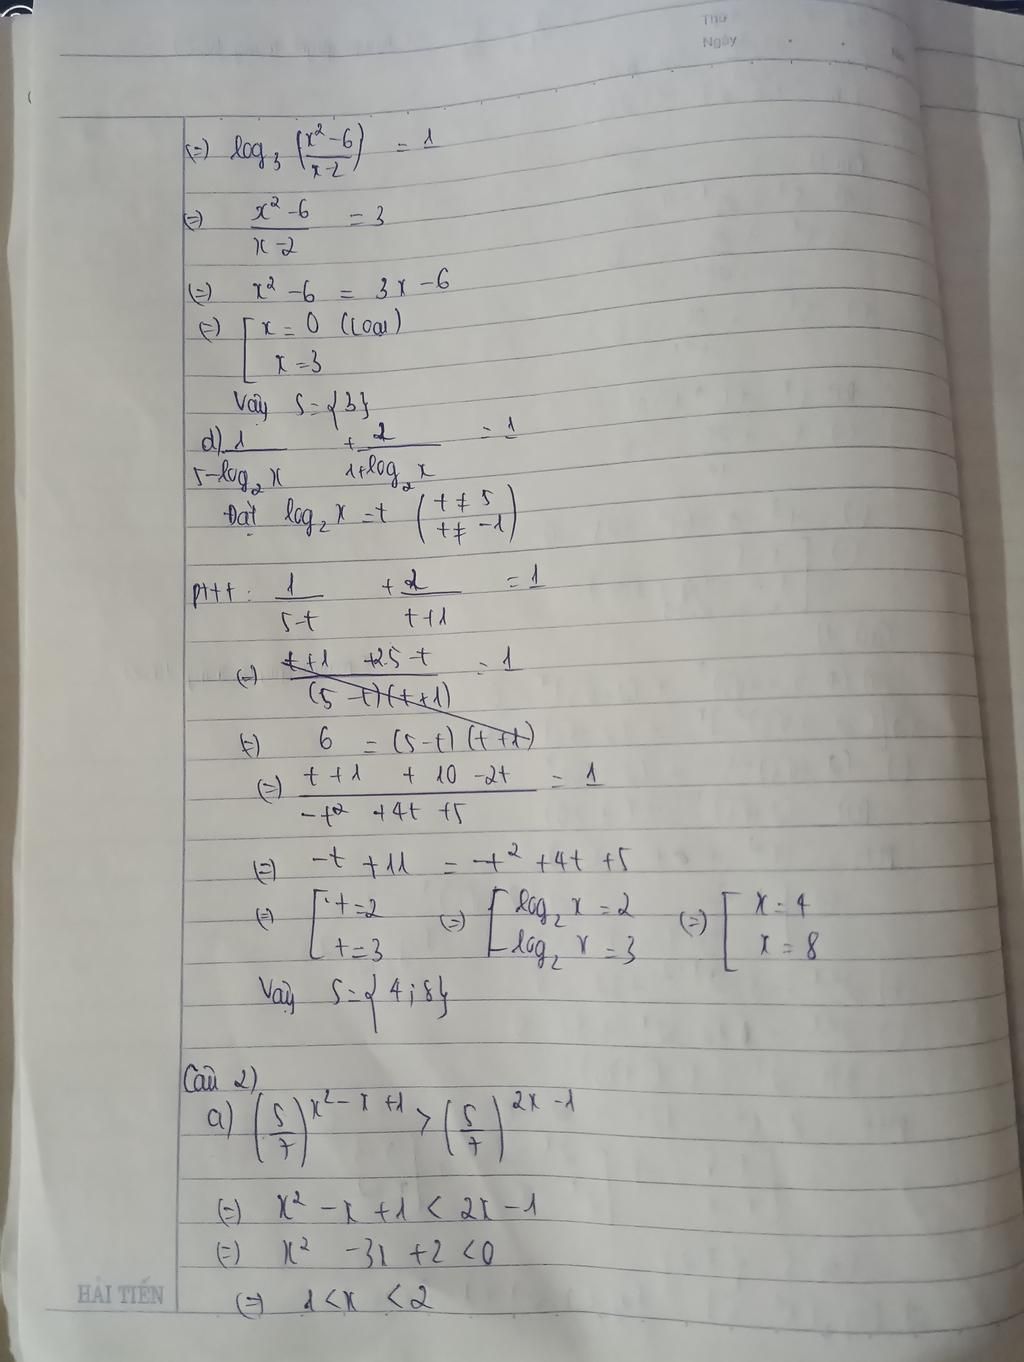 Thứ
Ngày
(=) log₃ (x²-6/x-2) = 1
(=) x²-6/x-2 = 3
(=) x² - 6 = 3x - 6
(=) [ x = 0 (loại)
x = 3
Vậy S = {3}
d) 1/5-log₂x + 2/1+log₂x = 1
Đặt log₂x = t (t ≠ 5
t ≠ -1)
pttt: 1/5-t + 2/t+1 = 1
(=) t+1 +2.5-t/(5-t)(t+1) = 1
(=) 6 = (5-t)(t+1)
(=) t+1 + 10-2t/-t²+4t+5 = 1
(=) -t + 11 = -t² + 4t + 5
(=) [ t = 2 (=) [ log₂x = 2 (=) [ x = 4
t = 3 log₂x = 3 x = 8
Vậy S = {4; 8}
Câu 2)
a) (5/7)^x²-x+1 > (5/7)^2x-1
(=) x² - x + 1 < 2x - 1
(=) x² - 3x + 2 < 0
(=) 1 < x < 2
HẢI TIẾN